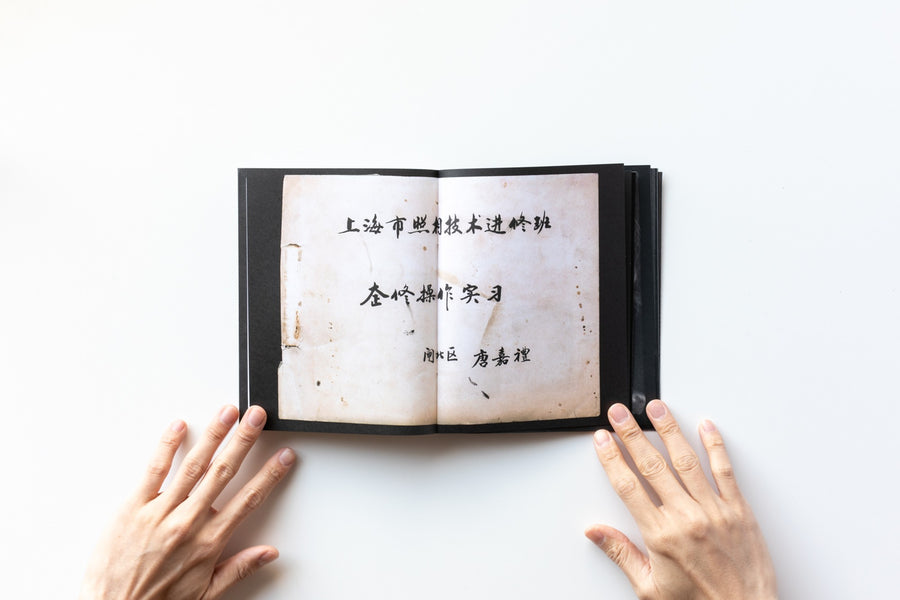 上海市照相技术进修班
整修操作实习
闸北区 唐嘉禮